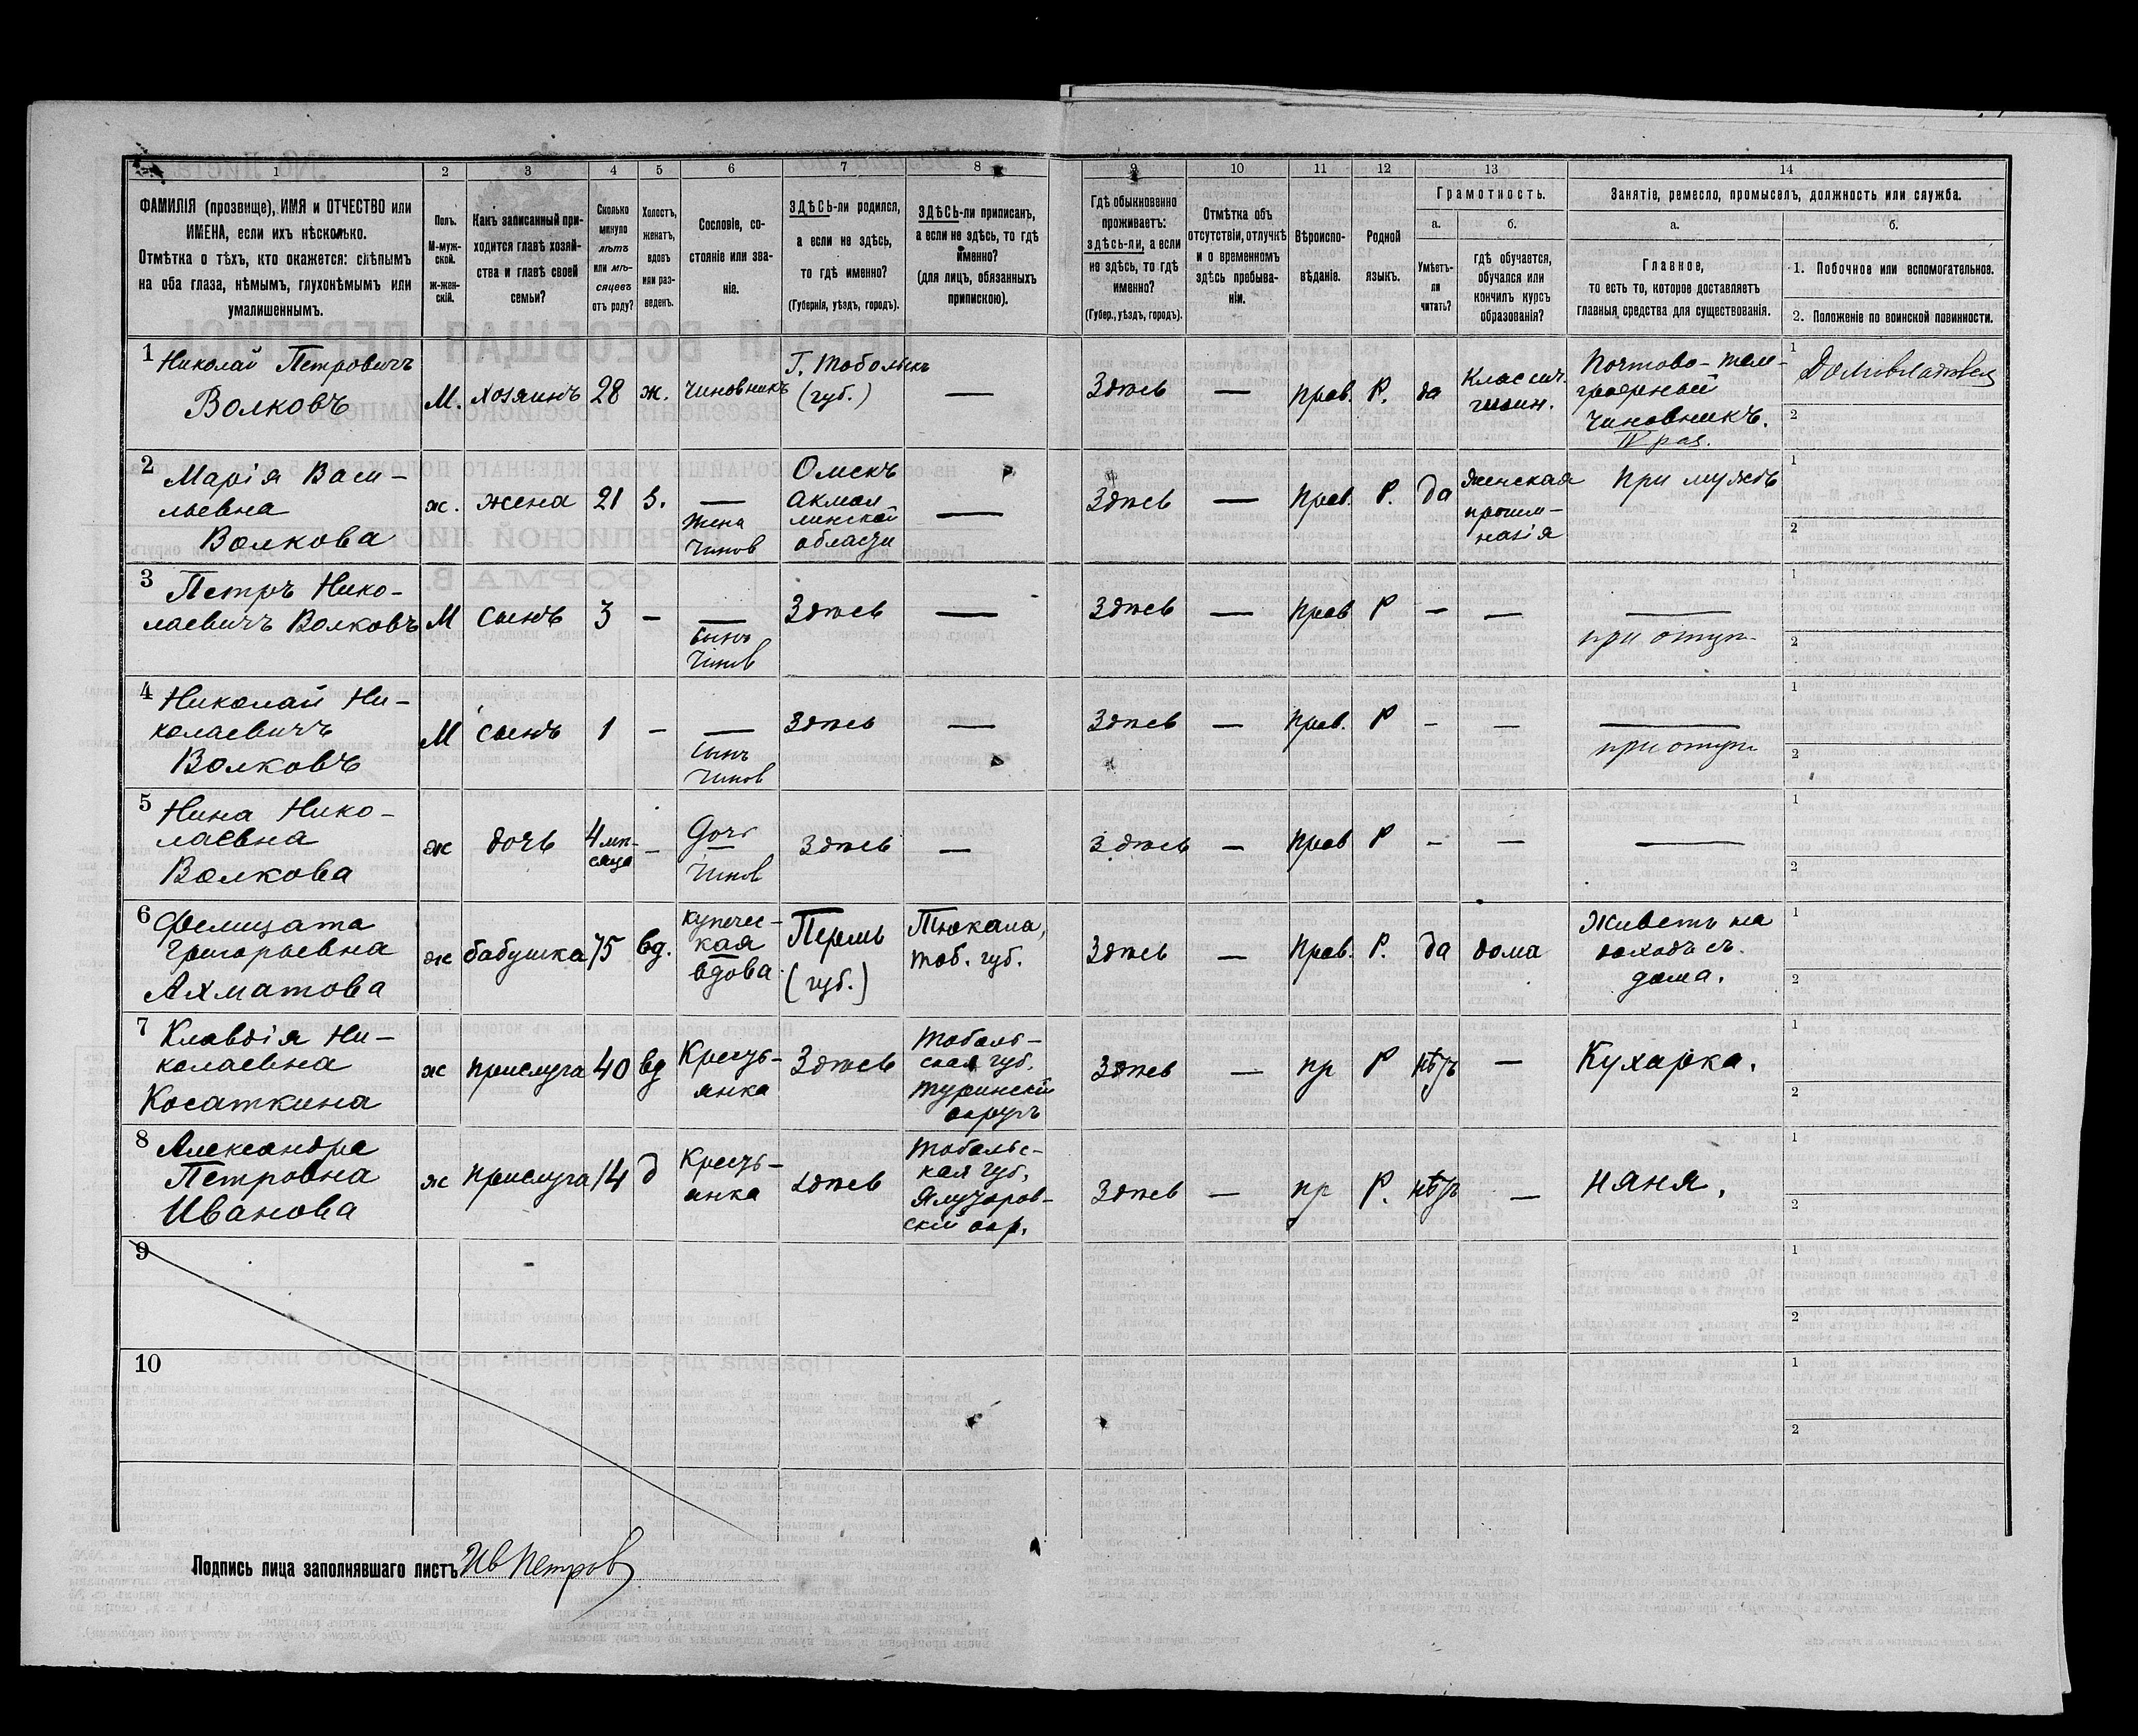 1
2
3
4
5
6
7
8
9
10
11
12
13
14
ФАМИЛІЯ (прозвище), ИМЯ и ОТЧЕСТВО или
ИМЕНА, если ихъ нѣсколько.
Отмѣтка о тѣхъ, кто окажется: слѣпымъ
на оба глаза, нѣмымъ, глухонѣмымъ или
умалишеннымъ.
Полъ.
М-муж-
ской.
ж-жен-
скій.
Какъ записанный при-
ходится главѣ хозяй-
ства и главѣ своей
семьи?
Сколько
минуло
лѣтъ
или мѣ-
сяцевъ
отъ роду?
Холостъ,
женатъ,
вдовъ
или раз-
веденъ.
Сословіе, со-
стояніе или зва-
ніе.
ЗДѢСЬ-ли родился,
а если не здѣсь,
то гдѣ именно?
(Губернія, уѣздъ, городъ).
ЗДѢСЬ-ли приписанъ,
а если не здѣсь, то гдѣ
именно?
(для лицъ, обязанныхъ
припискою).
Гдѣ обыкновенно
проживаетъ:
здѣсь-ли, а если
не здѣсь, то гдѣ
именно?
(Губер., уѣздъ, городъ).
Отмѣтка объ
отсутствіи, отлучкѣ
и о временномъ
здѣсь пребыва-
ніи.
Вѣроиспо-
вѣданіе.
Родной
языкъ.
Грамотность.
а.
б.
Умѣетъ-
ли
читать?
гдѣ обучается,
обучался или
кончилъ курсъ
образованія?
Занятіе, ремесло, промыселъ, должность или служба.
а.
б.
Главное,
то есть то, которое доставляетъ
главныя средства для существованія.
1. Побочное или вспомогательное.
2. Положеніе по воинской повинности.
1
Николай Петровичъ
Волковъ
М.
хозяинъ
28
ж.
чиновникъ
Г. Тобольскъ
(губ.)
—
Здѣсь
—
прав.
Р.
да
Классич.
гимн.
Почтово-теле-
графный
чиновникъ.
IV раз.
1
Домовладѣлец
2
2
Марія Васи-
льевна
Волкова
ж.
жена
21
з.
—
жена
чинов
Омскъ
Акмол
линской
области
—
Здѣсь
—
прав.
Р.
да
женская
прогим-
назія
при мужѣ
1
2
3
Петръ Нико-
лаевичъ Волковъ
М
сынъ
3
—
—
сынъ
чинов
Здѣсь
—
Здѣсь
—
прав
Р
—
—
—
при отцѣ
1
2
4
Николай Ни-
колаевичъ
Волковъ
М
сынъ
1
—
—
сынъ
чинов
Здѣсь
—
Здѣсь
—
прав.
Р
—
—
—
при отцѣ
1
2
5
Нина Нико-
лаевна
Волкова
ж
дочь
4 мѣ-
сяца
—
дочь
—
чинов
Здѣсь
—
Здѣсь
—
прав
Р
—
—
—
1
2
6
Фелицата
Григорьевна
Ахматова
ж
бабушка
75
вд.
купечес-
кая
вдова
Пермь
(губ.)
Тюкала,
тоб. губ.
Здѣсь
—
прав.
Р.
да
дома
Живетъ на
доходъ съ
дома.
1
2
7
Клавдія Ни-
колаевна
Косаткина
ж
прислуга
40
вд
Кресть-
янка
Здѣсь
Тоболь-
ская губ.
Туринскій
округъ
Здѣсь
—
пр
Р
нѣтъ
—
Кухарка.
1
2
8
Александра
Петровна
Иванова
ж
прислуга
14
д
Кресть-
янка
Здѣсь
Тобольс-
кая губ,
Ялуторов-
скій окр.
Здѣсь
—
пр
Р.
нѣтъ
—
няня.
1
2
9
1
2
10
1
2
Подпись лица заполнявшаго листъ Ив Петров